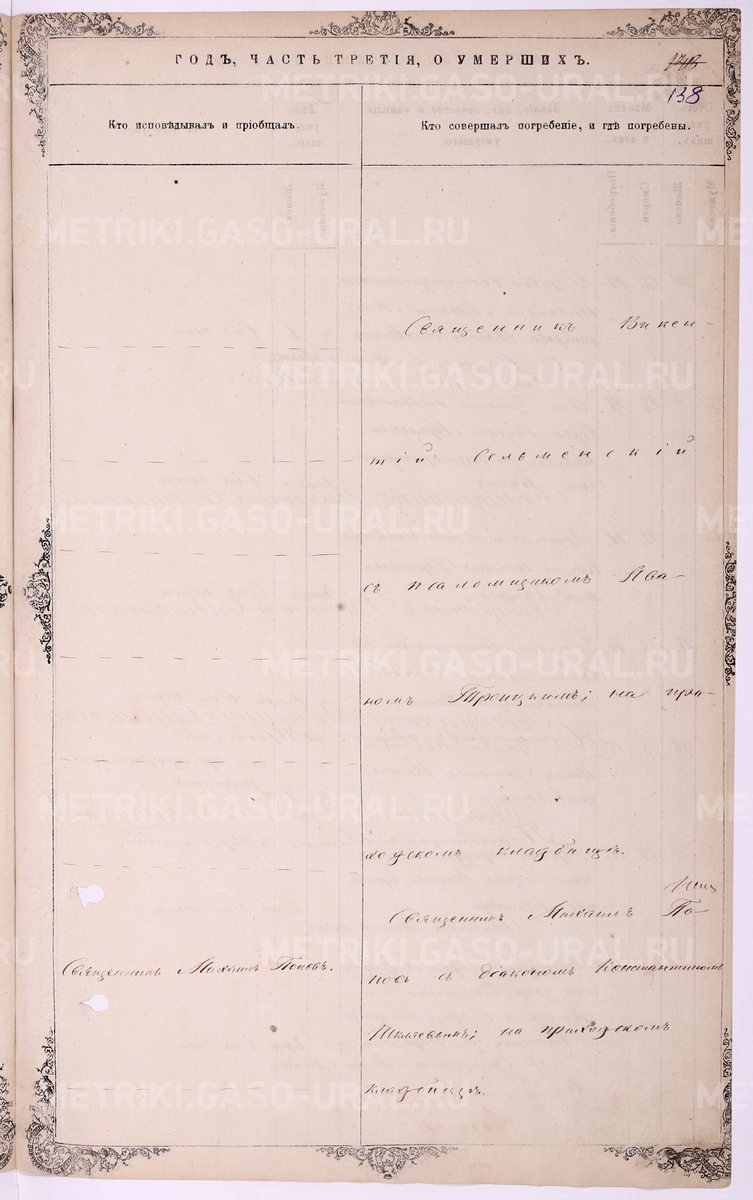 ГОДЪ, ЧАСТЬ ТРЕТІЯ, О УМЕРШИХЪ.
138
Кто исповѣдывалъ и пріобщалъ.
Кто совершалъ погребеніе, и гдѣ погребены.
METRIKI.GASO-URAL.RU
Священникъ Викен-
тій Сельменскій
съ псаломщикомъ Ива-
номъ Троицкимъ; на при-
ходскомъ кладбищѣ.
Священникъ Михаилъ По
Священникъ Михаилъ Поповъ.
повъ съ діакономъ Константиномъ
на приходскомъ
кладбищѣ.